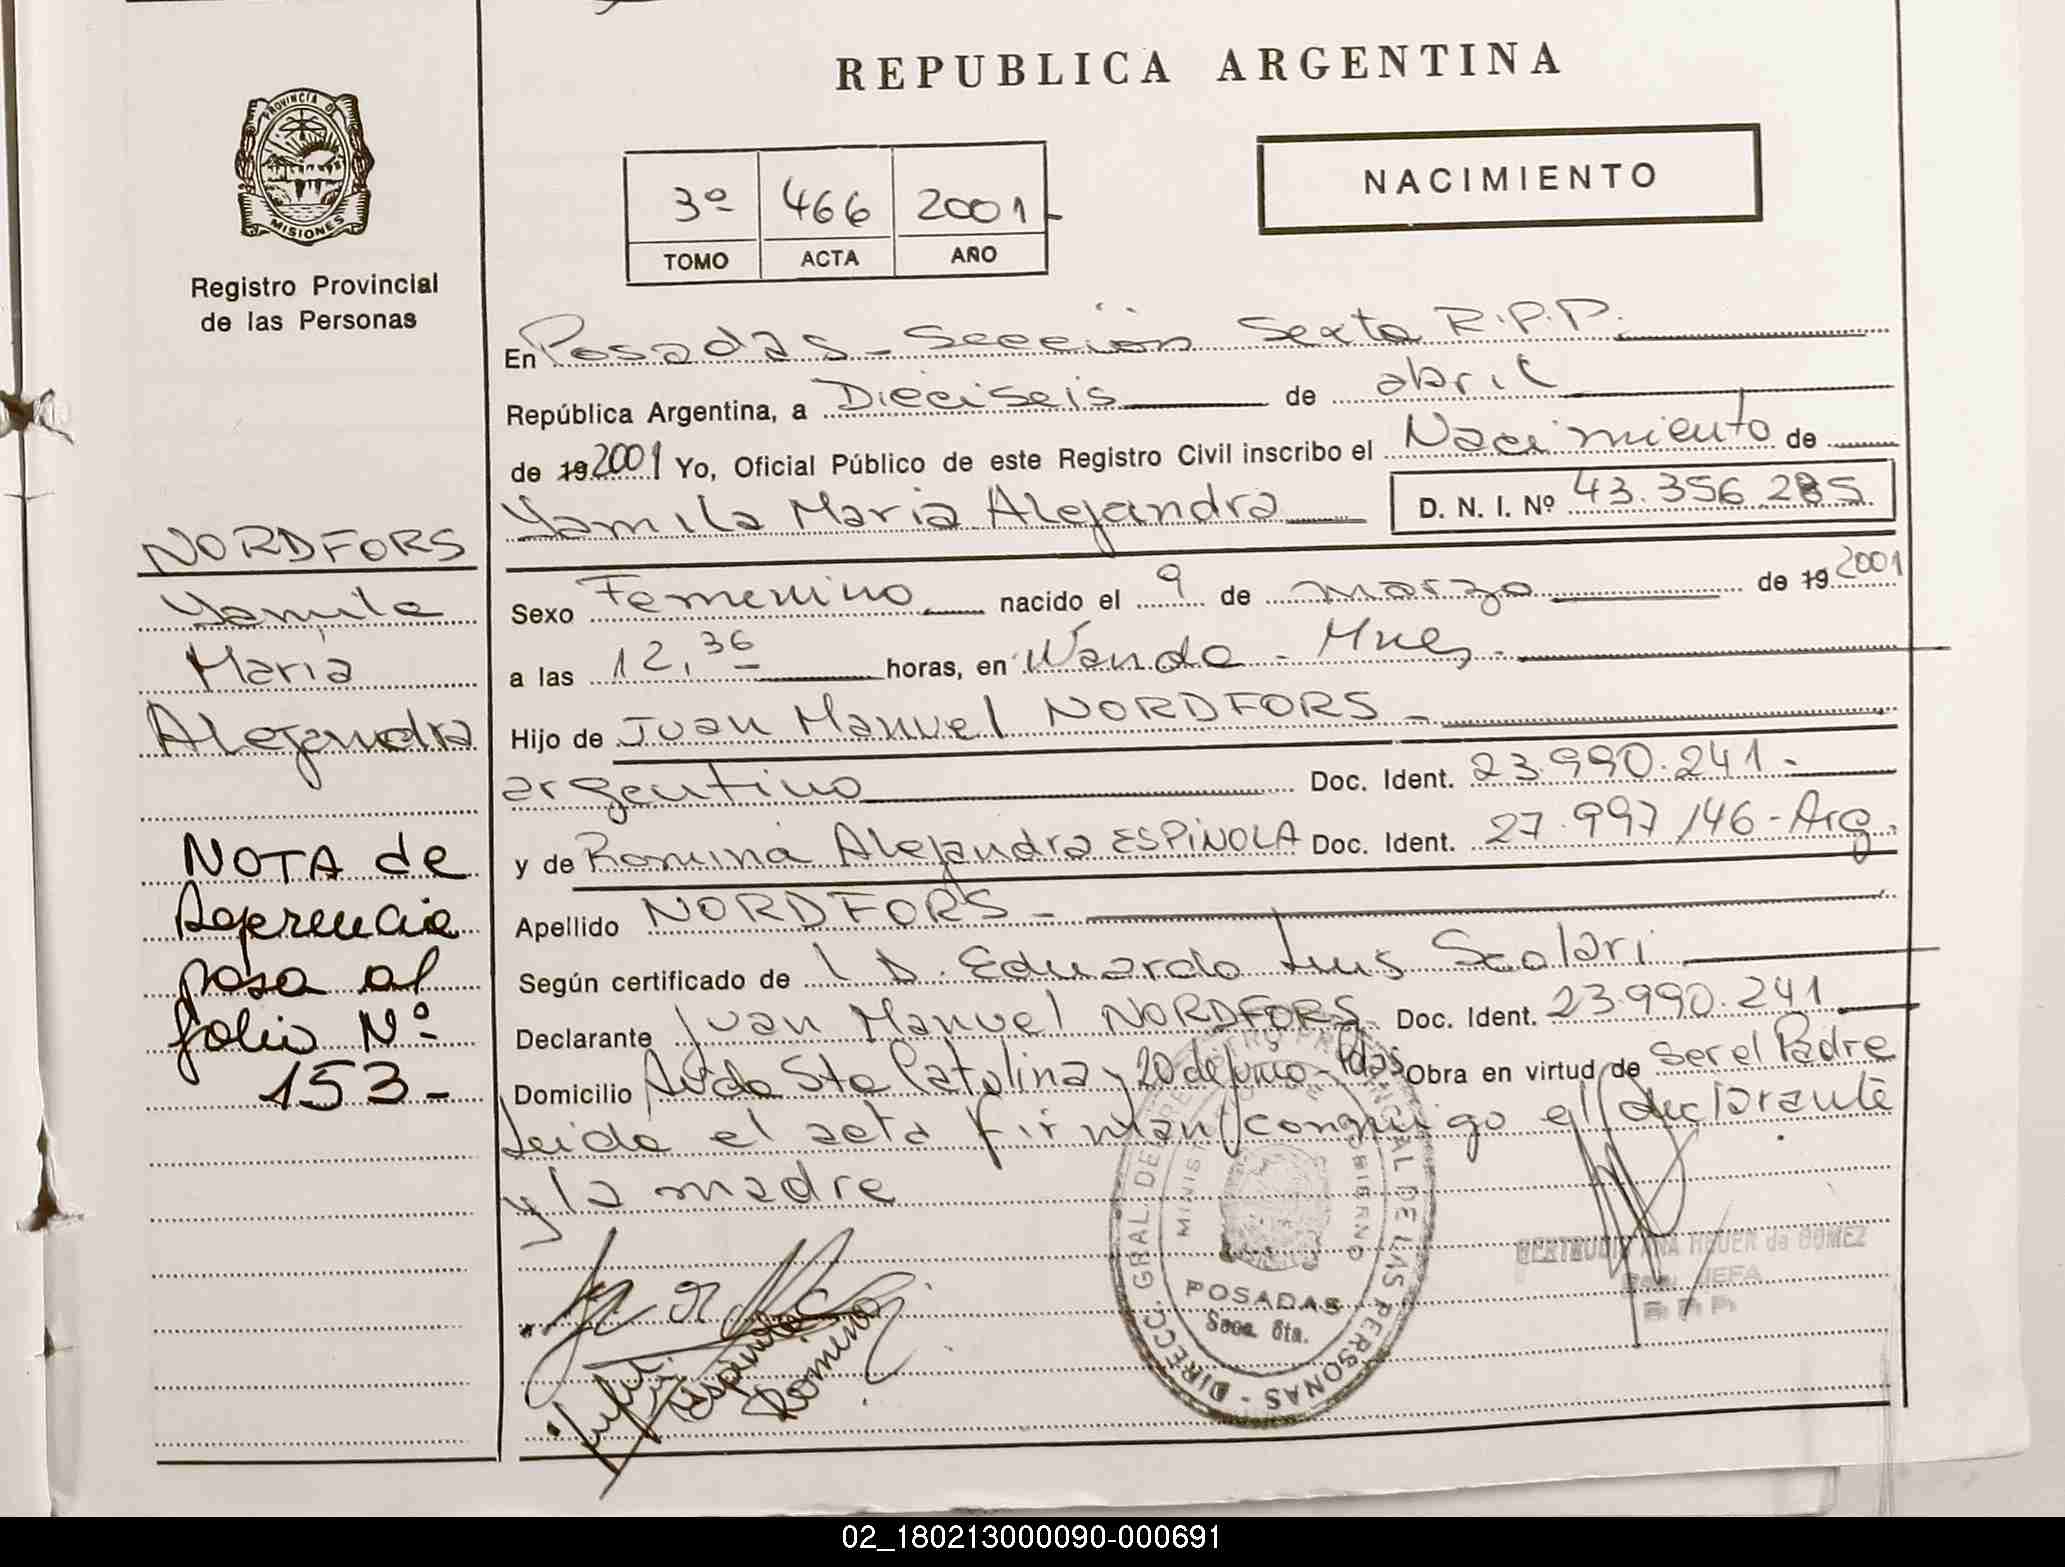 REPUBLICA ARGENTINA
PROVINCIA DE
MISIONES
Registro Provincial
de las Personas
3º 466 2001
TOMO ACTA AÑO
NACIMIENTO
En Posadas - Sección Sexta R.P.P.
República Argentina, a Dieciseis de abril
de 19 2001 Yo, Oficial Público de este Registro Civil inscribo el Nacimiento de
Yamila Maria Alejandra D. N. I. Nº 43.356.285
Sexo Femenino nacido el 9 de marzo de 19 2001
a las 12,36 horas, en Wanda - Mnes.
Hijo de Juan Manuel NORDFORS -
argentino Doc. Ident. 23.990.241.-
y de Romina Alejandra ESPINOLA Doc. Ident. 27.997.146-Arg.
Apellido NORDFORS -
Según certificado de Eduardo Luis Scolari
Declarante Juan Manuel NORDFORS Doc. Ident. 23.990.241
Domicilio Avda Sta Catalina y 20 de junio - Pdas Obra en virtud de Ser el Padre
Leida el acta firman conmigo el declarante
y la madre
NORDFORS
Yamila
Maria
Alejandra
NOTA de
Referencia
pasa al
folio Nº
153-
Espinola
Romina
DIRECC. GRAL. DE REGISTRO PROVINCIAL DE LAS PERSONAS -
MINISTERIO DE GOBIERNO
POSADAS
Secc. 6ta.
GERTRUDIS ANA HEUER de GOMEZ
JEFA
R.P.P.
02_180213000090-000691